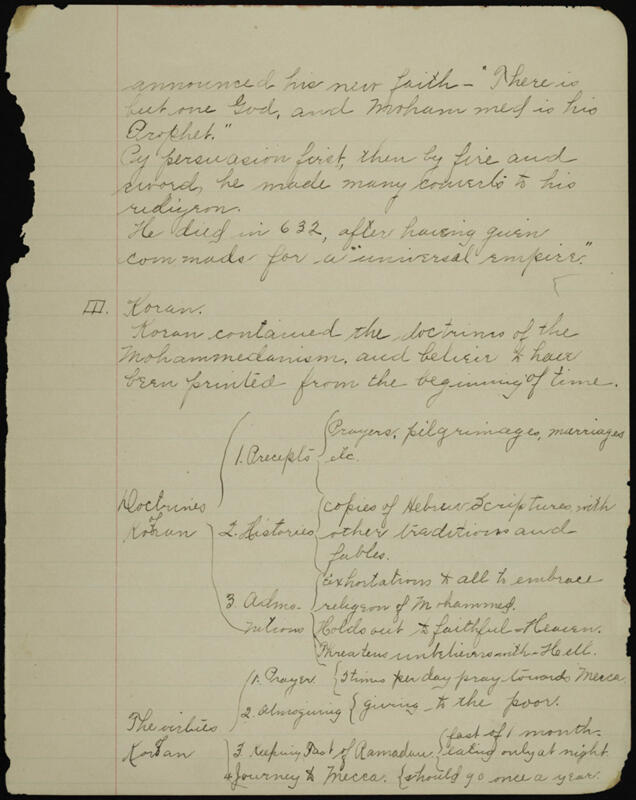 announced his new faith - "There is
but one God, and Moham med is his
Prophet."
By persuasion first, then by fire and
sword, he made many converts to his
religion.
He died in 632, after having given
commads for a "universal empire."
III. Koran.
Koran contained the doctrines of the
Mohammedanism, and believ to have
been printed from the beginning of time.
Doctrines
of
Koran
1. Precepts { Prayers, pilgrimages, marriages
etc.
2. Histories { copies of Hebrew Scriptures, with
other traditions and
fables.
3. Admo-
nitions { exhortations to all to embrace
religion of Mohammed.
Holds out to faithful - Heaven.
Threatens unbelievers with - Hell.
The virtues
of
Koran
1. Prayer { 5 times per day pray towards Mecca
2. Almsgiving { giving to the poor.
3. Keeping Fast of Ramadan. { fast of 1 month.
eating only at night.
4. Journey to Mecca. { should go once a year.